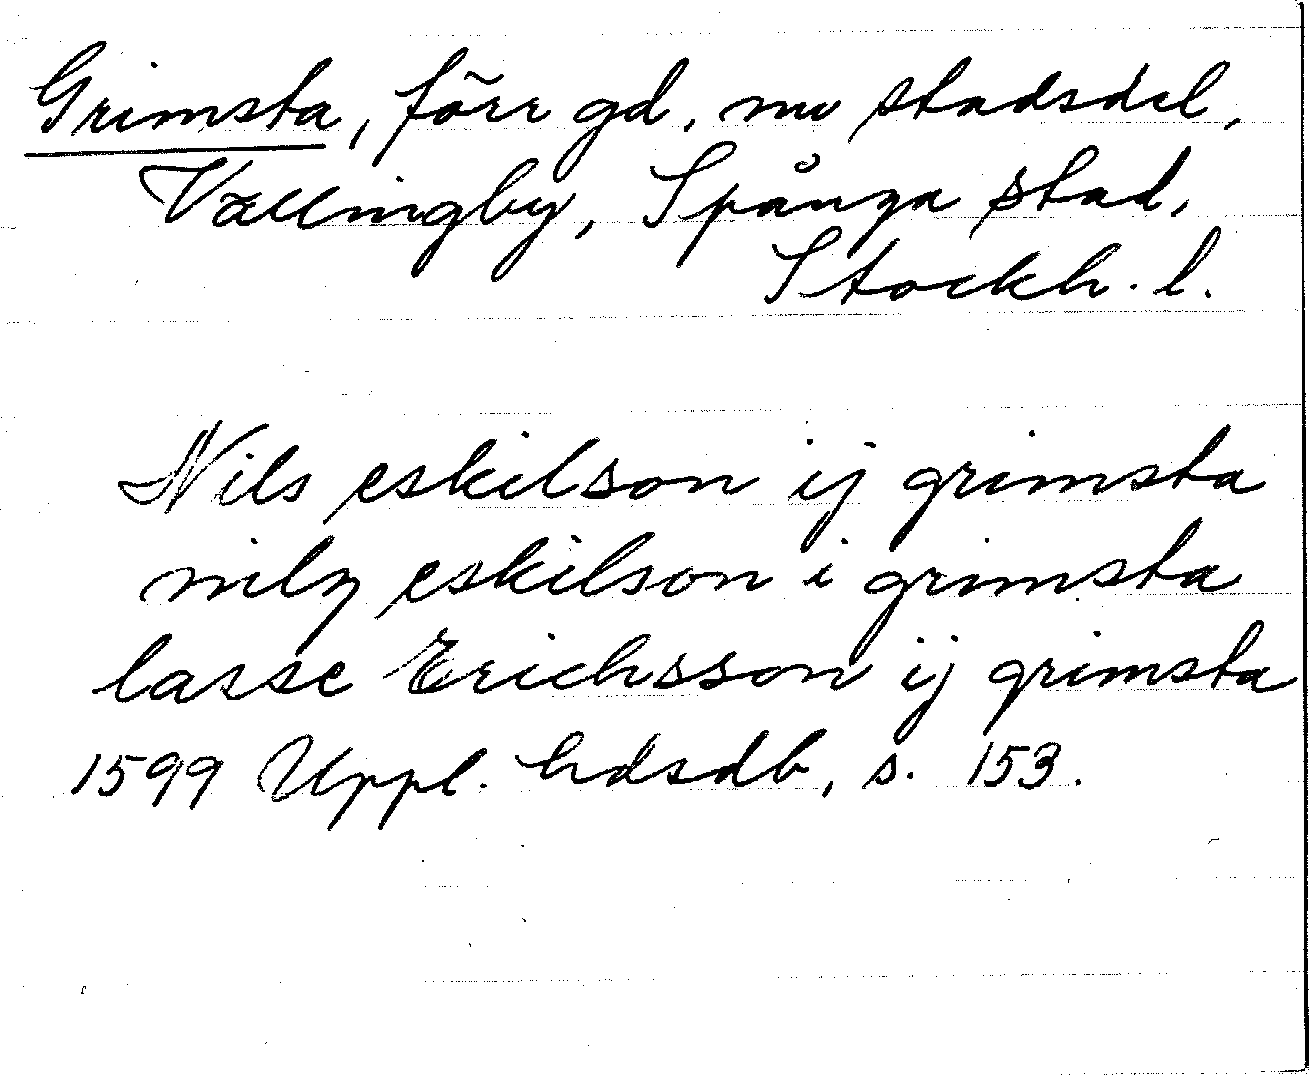 Grimsta, förr gd, nu stadsdel,
Vällingby, Spånga stad,
Stockh. l.
Nils eskilson ij grimsta
nilz eskilson i grimsta
lasse Erichsson ij grimsta
1599 Uppl. hdsdb, s. 153.